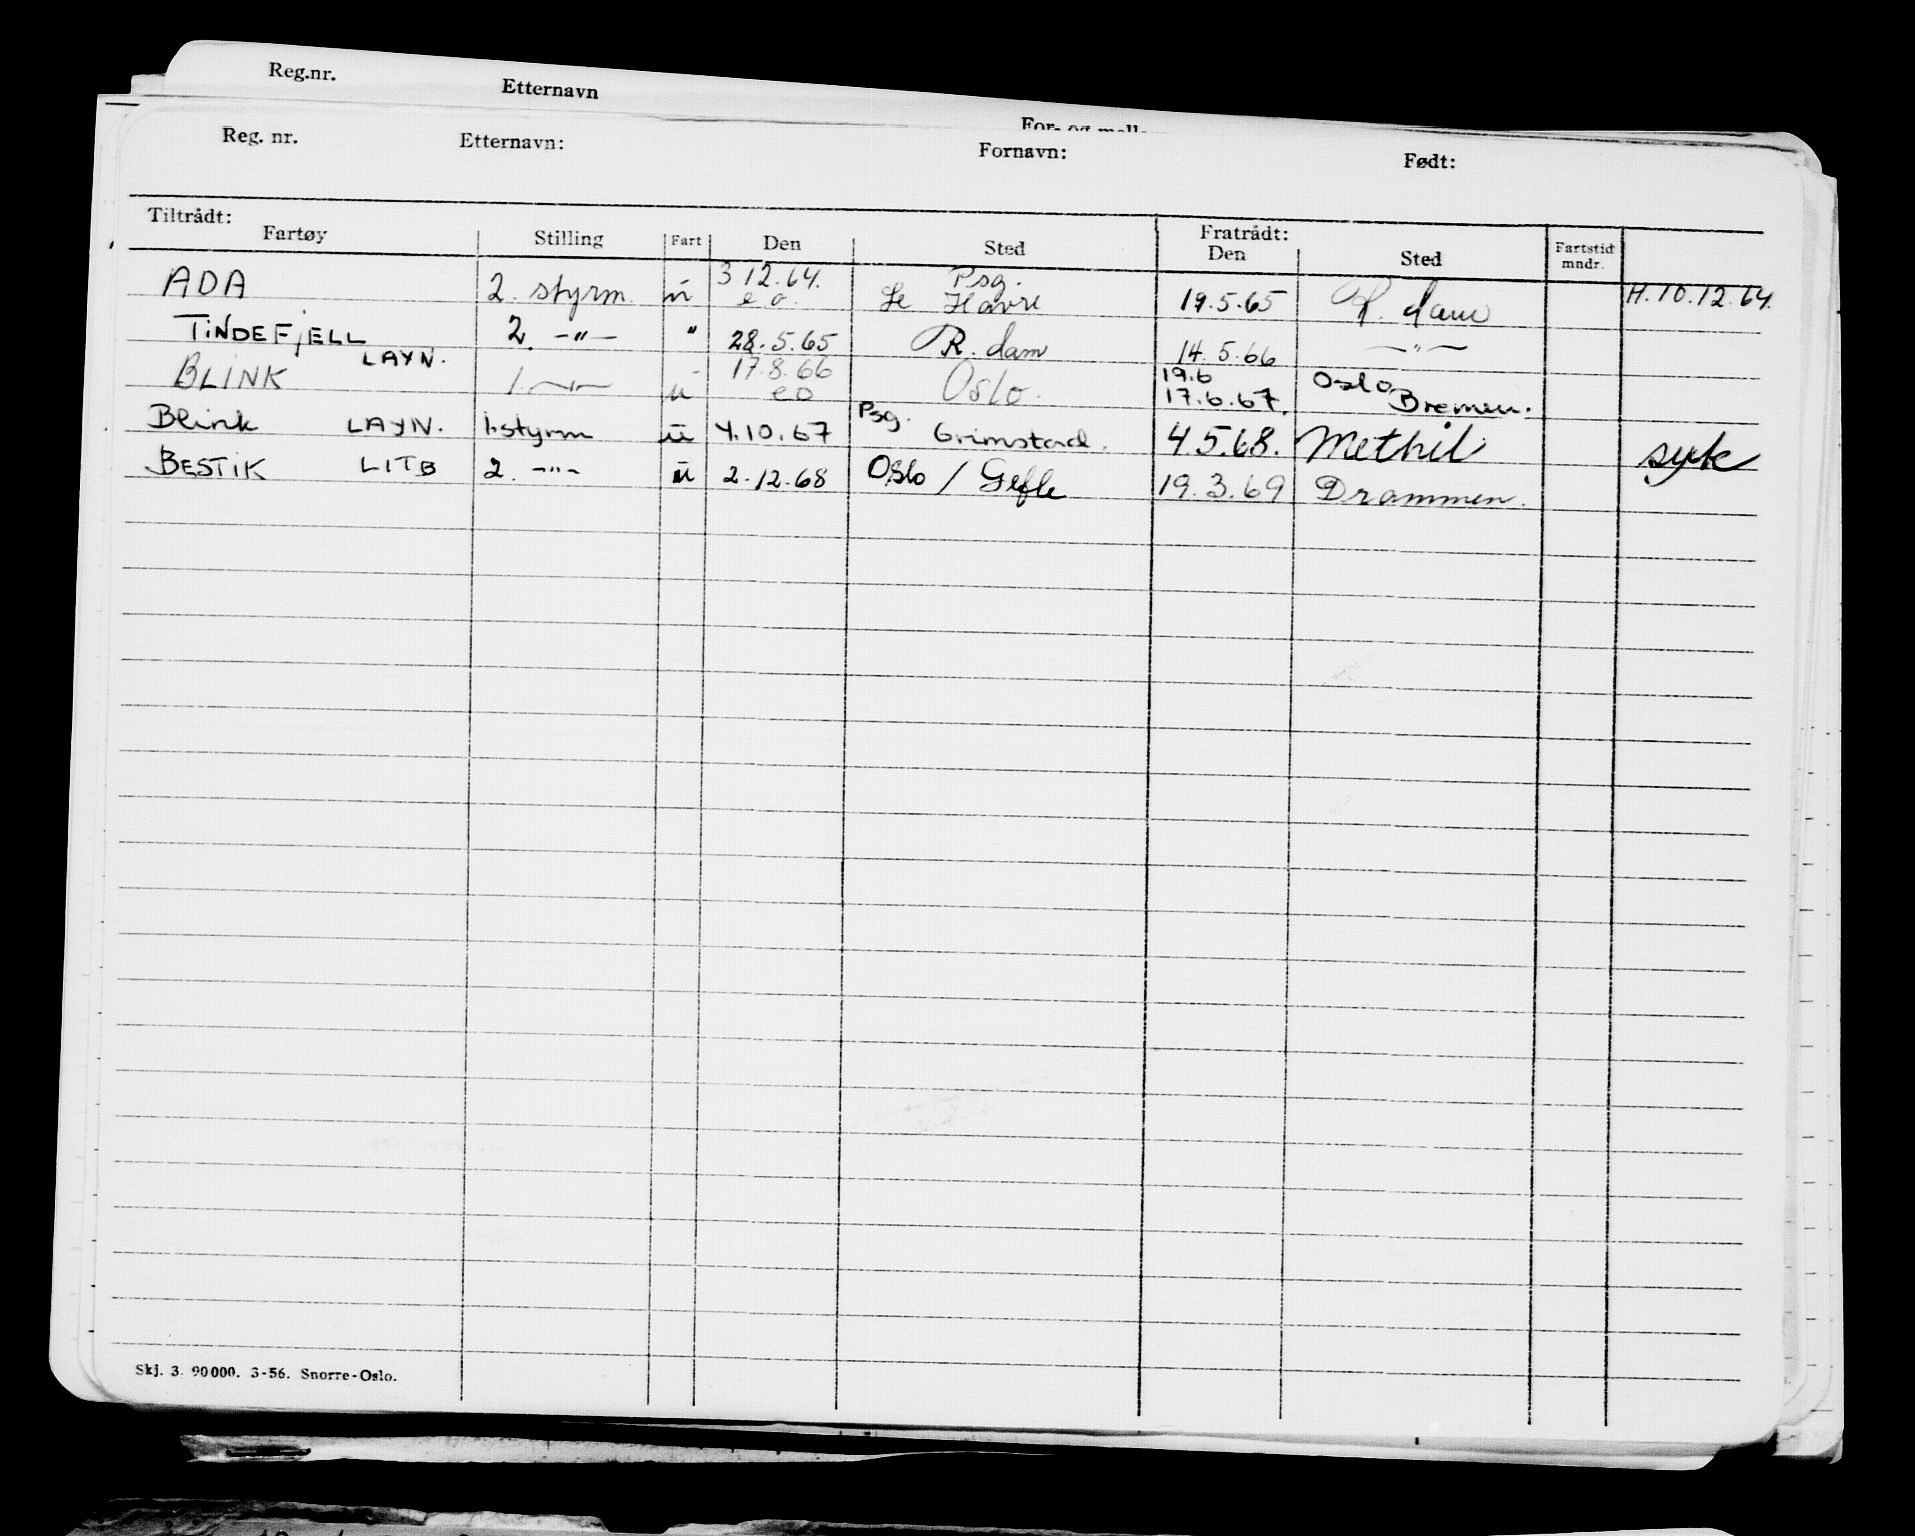 Reg.nr. Etternavn
Reg. nr. Etternavn: Fornavn: Født:
Tiltrådt: Fratrådt:
Fartøy Stilling Fart Den Sted Den Sted Fartstid mndr.
ADA 2. styrm. ü 3.12.64. e.o. Psg. Le Havre 19.5.65 R. dam H. 10.12.64.
TINDEFJELL 2. -"- " 28.5.65 R. dam 14.5.66 -"-
BLINK LAYN. 1. -"- ü 17.8.66 eo Oslo. 19.6 17.6.67. Oslo Bremen.
Blink LAYN. 1.styrm ü 4.10.67 Psg. Grimstad. 4.5.68. Methil syk
BESTIK LITB 2. -"- ü 2.12.68 Oslo / Gefle 19.3.69 Drammen.
Skj. 3. 90000. 3-56. Snorre-Oslo.